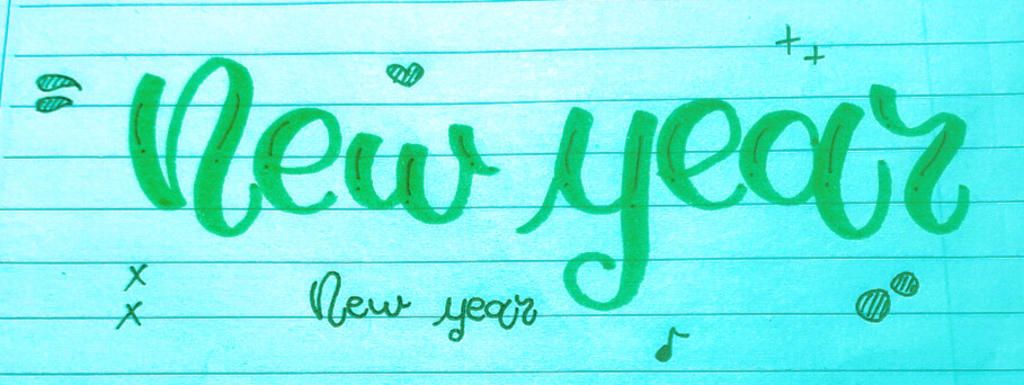 New year
New year